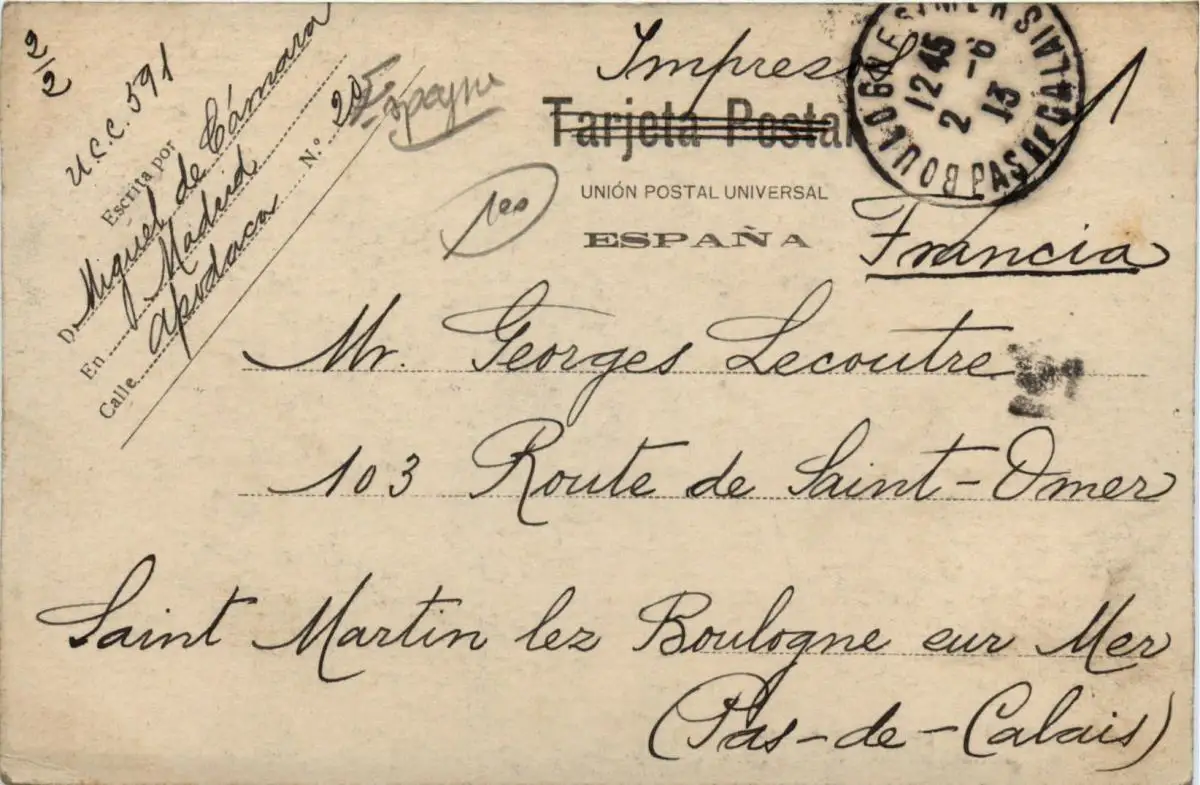 2/2
U.C.C. 591
Escrita por
D. Miguel de Cámara
En Madrid
Calle Apodaca N.º 20
Espagne
1es
Impreso
Tarjeta Postal
UNIÓN POSTAL UNIVERSAL
ESPAÑA
BOULOGNE S/MER PAS DE CALAIS
12 45
2 -6
13
Francia
Mr. Georges Lecoutre
103 Route de Saint-Omer
Saint Martin lez Boulogne sur Mer
(Pas-de-Calais)